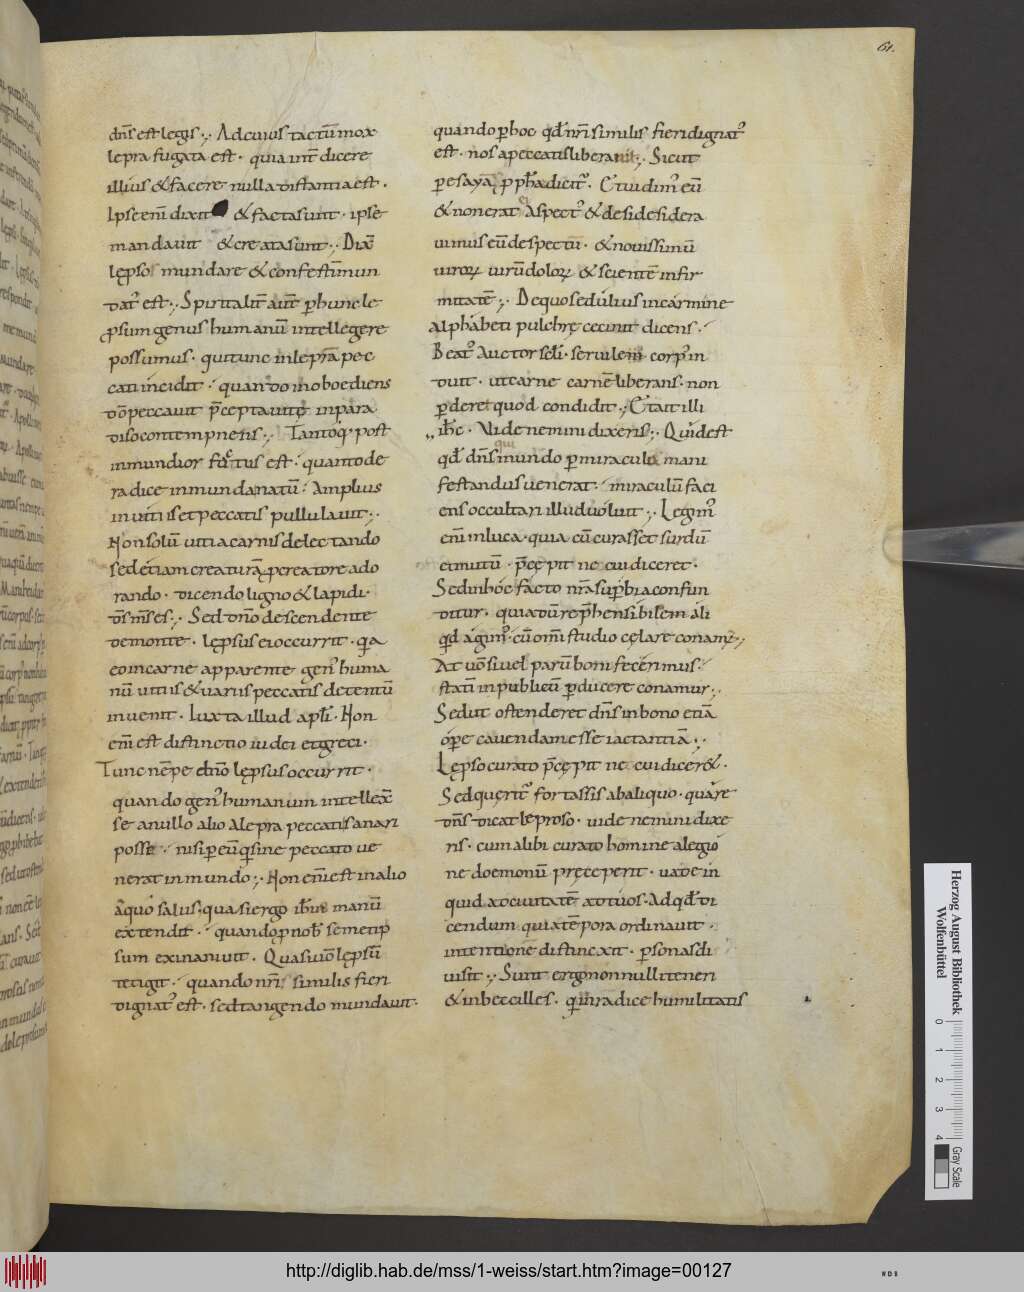 61.
dn̄s est legis ;. Ad cuius tactū mox
lepra fugata est · quia int̄ dicere
illius & facere nulla distantia est ·
Ipse enī dixit & facta sunt · ipse
mandauit & creata sunt ;. Dix̄
lep̨so mundare & confestī mun
dat' est ;. Spiritalit̄ aut̄ p hunc le
psum genus humanū intellegere
possumus · qui tunc in lep̄ra pec
cati incidit · quando inoboediens
dō peccauit p̄cepta uitę in para
diso contempnens ;. Tantoq; post
inmundior fęt'us est · quanto de
radice inmunda natū · Amplius
in uitiis et peccatis pullulauit ;.
Non solū uitia carnis delectando
sed etiam creaturā p creatore ado
rando · dicendo ligno & lapidi ·
dn̄s m̄s es ;. Sed dn̄o descendente
de monte · lep̨sus ei occurrit · q̄a
eo in carne apparente gen' huma
nū uitiis & uariis peccatis detentū
inuenit · Iuxta illud apl̄i · Non
enī est distinctio iudei et greci ·
Tunc nēpe dn̄o lep̨sus occurrit ·
quando gen' humanum intellex̄
se a nullo alio a lepra peccati sanari
posse · nisi p eū q̄ sine peccato ue
nerat in mundo ;. Non enī est in alio
aliquo salus · quasi ergo ih̄s manū
extendit · quando p nob' semetip
sum exinaniuit · Quasi uō lep̨sū
tetigit · quando nr̄i similis fieri
dignat' est · sed tangendo mundauit ·
quando p hoc qd̄ nr̄i similis fieri dignat'
est · nos a peccatis liberauit ;. Sicut
p esayā pph̄a dicit' · Et uidim' eū
& non erat ei aspect' & desidesidera
uimus eū despectū · & nouissimū
uiroꝝ uirū doloꝝ & scientē infir
mitatē ;. De quo sedulius in carmine
alphabeti pulchrę cecinit dicens ·
Beat' auctor scl̄i · seruilem corp' in
duit · ut carne carnē liberans · non
pderet quod condidit ;. Et ait illi
ih̄c · Uide nemini dixeris ;. Quid est
qd̄ dn̄s qui mundo p miracula mani
festandus uenerat · miraculū faci
ens occultari illud uoluit ;. Legim'
enī in luca · quia cū curasset surdū
et mutū · p̄cępit ne cui diceret ·
Sed in hoc facto nr̄a supbia confun
ditur · quia dū rep̄hensibilem ali
qd̄ agim' · cū om̄i studio cęlare conam' ;.
At uō si uel parū boni fecerimus ·
statī in publicū pducere conamur ;.
Sed ut ostenderet dn̄s in bono etiā
ope cauendam esse iactantiā ·
Lep̨so curato p̄cępit ne cui dicer& ·
Sed querit' fortassis ab aliquo · quare
dn̄s dicat leproso · uide nemini dixe
ris · cum alibi curato homine a legio
ne doemonū pręceperit · uade in
quid ad ciuitatē ad tuos · Ad qd̄ di
cendum quia tēpora ordinauit ·
intentione distinxit · psonas di
uisit ;. Sunt ergo nonnulli teneri
& inbecilles · q in radice humilitatis
Herzog August Bibliothek
Wolfenbüttel
0 1 2 3 4
Gray Scale
http://diglib.hab.de/mss/1-weiss/start.htm?image=00127